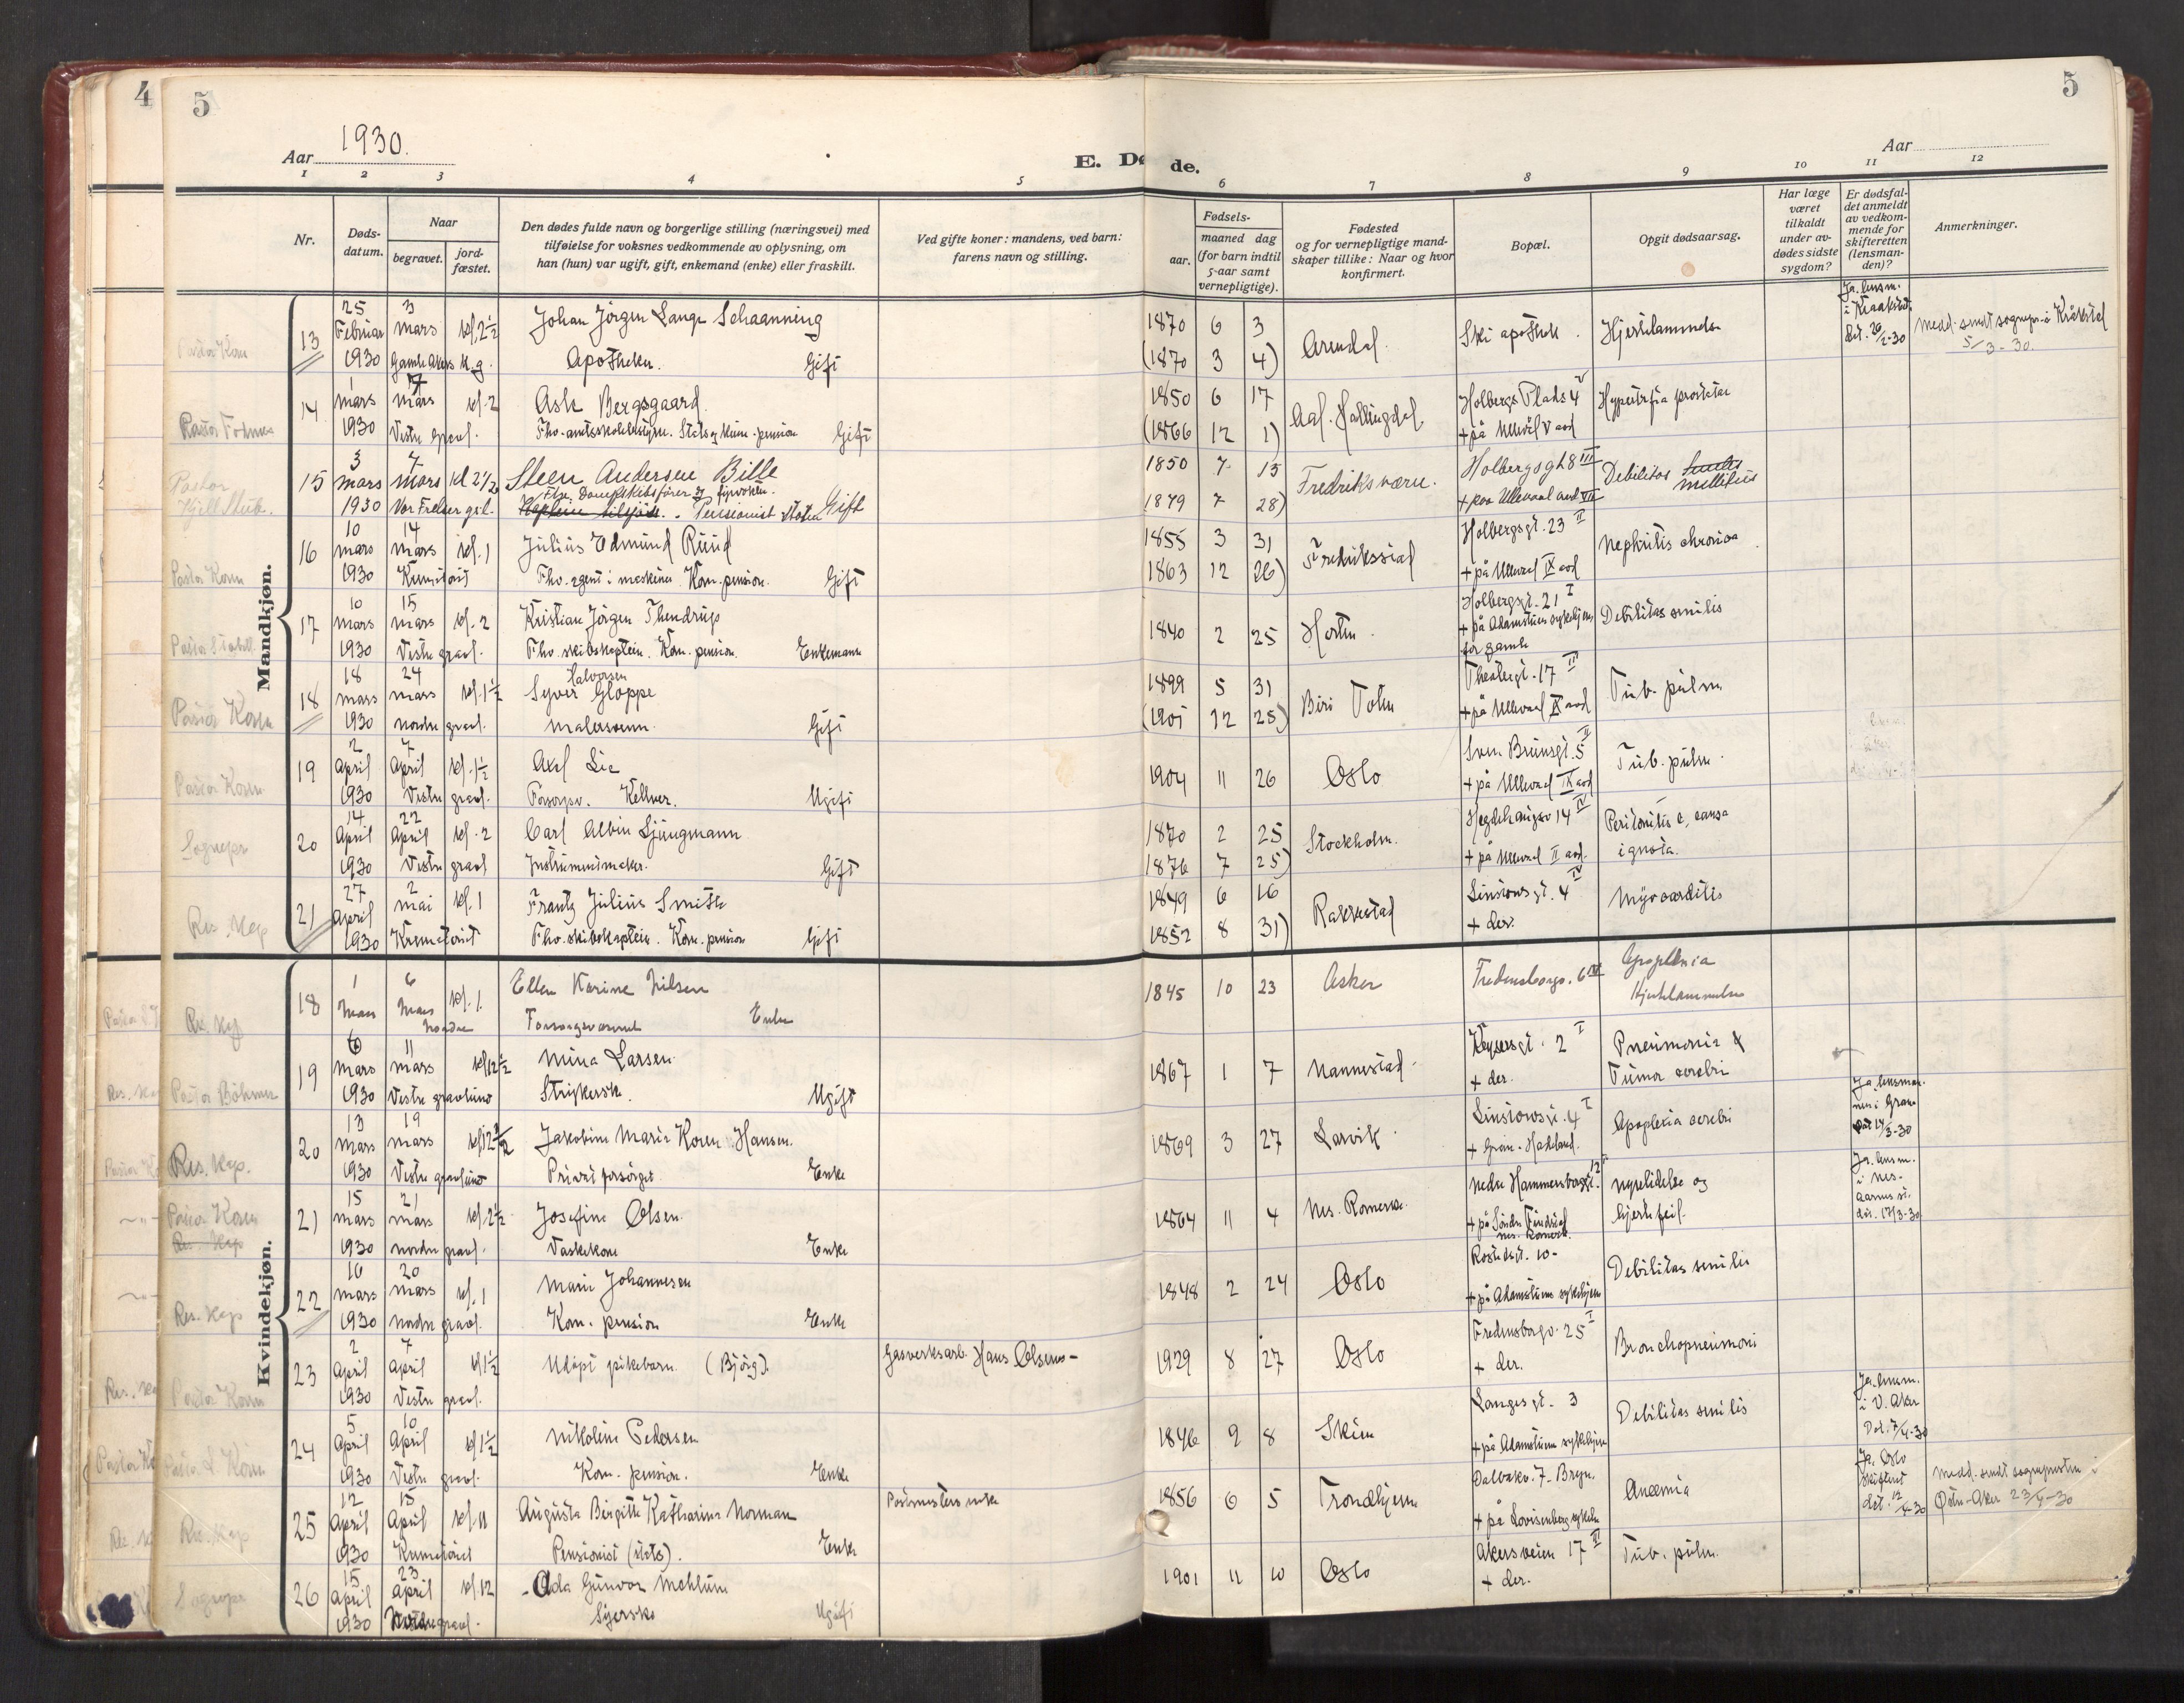 4
5
5
Aar 1930.
E. Dø
de.
Aar
1 2 3 4 5 6 7 8 9 10 11 12
Nr.
Døds-
datum.
Naar
begravet.
jord-
fæstet.
Den dødes fulde navn og borgerlige stilling (næringsvei) med
tilføielse for voksnes vedkommende av oplysning, om
han (hun) var ugift, gift, enkemand (enke) eller fraskilt.
Ved gifte koner: mandens, ved barn:
farens navn og stilling.
Fødsels-
aar.
maaned dag
(for barn indtil
5-aar samt
vernepligtige).
Fødested
og for vernepligtige mand-
skaper tillike: Naar og hvor
konfirmert.
Bopæl.
Opgit dødsaarsag.
Har læge
været
tilkaldt
under av-
dødes sidste
sygdom?
Er dødsfal-
det anmeldt
av vedkom-
mende for
skifteretten
(lensman-
den)?
Anmerkninger.
Mandkjøn.
Pastor Koren
13 25 Februar 1930 3 mars kl 2½ Gamle Akers k.g.
Johan Jörgen Lange Schaanning
Apotheker. Gift
1870 6 3
(1870 3 4)
Arendal.
Ski apothek.
Hjertelammelse
Ja. lensm.
i Kraakstad
26/2-30
Medd. sendt sognepr. i Kråkstad
5/3-30.
14 1 mars 1930 7 mars kl. 2 Vestre gravl.
Asle Bergsgaard
Fhv. amtsskolebestyrer. Stats og kom. pension Gift
1850 6 17
(1866 12 1)
Aal. Hallingdal.
Holbergs Plads 4 V
+ på Ullevål V avd
Hypertrfia prostatae
Pastor
15 3 mars 1930 7 mars kl 2½ Vor Frelser grl.
Steen Andersen Bille
Fhv. Dampskibsfører og fyrvokter.
Kaptein tilsjös. Pensionist Staten Gift
1850 7 15
1879 7 28)
Fredriksværn.
Holbergsgt 8 III
+ paa Ullevaal avd VII
Debilitas
Pastor Koren
16 10 mars 1930 14 mars kl. 1 Krematoriet
Julius Edmund Ruud
Fhv. agent i maskiner. Kom. pension. Gift
1855 3 31
1863 12 26)
Fredriksstad
Holbergsgt. 23 II
+ på Ullevaal IX avd
Nephritis chronica
17 10 mars 1930 15 mars kl. 2 Vestre gravl.
Kristian Jörgen Thendrup
Fhv. skibskaptein. Kom. pension. Enkemann
1840 2 25
Horten.
Holbergsgt. 21 I
+ på Adamstuens sykehjem
for gamle
Debilitas senilis
Pastor Koren
18 18 mars 1930 24 mars kl. 1½ Nordre gravl.
Halvorsen
Syver Gloppe
Malersvenn. Gift
1899 5 31
(1901 12 25)
Biri Toten
Theatergt. 17 III
+ på Ullevaal IX avd
Tub. pulm.
Pastor Koren
19 2 April 1930 7 April kl. 1½ Vestre gravl.
Axel Lie
Forsørgv. Kellner. Ugift
1904 11 26
Oslo
Sven Brunsgt. 5 II
+ på Ullevaal IX avd
Tub. pulm.
Sognepr
20 14 April 1930 22 April kl. 2 Vestre gravl
Carl Albin Ljungmann
Instrumentmaker. Gift
1870 2 25
1876 7 25)
Stockholm.
Hegdehaugsv 14 IV
+ på Ullevaal II avd.
Peritonitis e. causa
ignota.
Res. Kap
21 27 April 1930 2 mai kl. 1 Krematoriet
Frantz Julius Smith
Fhv. skibskaptein. Kom. pension Gift
1849 6 16
1852 8 31)
Rakkestad
Linstowsgt. 4 IV
+ der.
Myocarditis
Kvindekjøn.
Res. Kap
18 1 Mars 6 Mars kl. 1 Nordre
Ellen Karine Nilsen
Forsorgsvesenet Enke
1845 10 23
Asker
Fredensborgv. 6 IV
Apoplexia
Hjertelammelse
Pastor Böhmer
19 6 mars 1930 11 mars kl 12½ Vestre gravlund
Mina Larsen
Strykerske. Ugift
1867 1 7
Nannestad.
Keysersgt. 2 I
+ der.
Pneumonia &
Tumor cerebri
Res. Kap.
20 13 mars 1930 19 mars kl 12½ Vestre gravlund
Jakobine Marie Koren Hansen.
Privat forsørget Enke
1869 3 27
Larvik.
Linstowsgt. 4 I
+ Gran. Hadeland.
Apoplexia cerebri
Ja. lensman-
nen i Gran
dat 14/3-30
Pastor Koren
Res. Kap
21 15 mars 1930 21 mars kl. 2½ Nordre gravl.
Josefine Olsen.
Vaskekone Enke
1864 11 4
Nes. Romerike.
Nedre Hammersborggt. 12
+ på Söndre
Nes. Romerik.
Nyrelidelse og
hjertefeil.
Ja. lensm.
i Nes.
Aarnes st.
dat. 17/3-30
Res. Kap
22 16 mars 1930 20 mars kl. 1 Nordre gravl.
Marie Johannesen
Kom. pension Enke
1848 2 24
Oslo
Rostedsgt. 10-
+ på Adamstuens sykehjem
Debilitas senilis
Pastor Koren
23 2 April 1930 7 April kl 1½ Vestre gravl.
Udöpt pikebarn (Bjørg).
Gasverksarb. Hans Olsens-
1929 8 27
Oslo
Fredensborgv. 25 I
+ der.
Bronchopneumoni
24 5 April 1930 10 April kl 1½ Vestre gravl.
Nikoline Pedersen
Kom. pension. Enke
1846 9 8
Skien
Langesgt. 3
+ på Adamstuens sykehjem
Debilitas senilis
Ja. lensm.
i V. Aker
Dat. 7/4-30
Res. Kap
25 12 April 1930 15 April kl. 11 Krematoriet
Augusta Birgitte Katharina Norman
Pensionist (stats). Enke
Postmesters enke
1856 6 5
Trondhjem
Dalvakv. 7. Bryn.
+ på Lovisenberg sykehus
Anæmia
Ja. Oslo
skifteret
dat. 12/4-30
Medd. sendt sognepresten i
Østre-Aker 23/4-30
Sognepr
26 15 April 1930 23 April kl. 12 gravl.
Ada Gunvor Mehlum
Syerske Ugift
1901 11 10
Oslo
Akersveien 17 III
+ der.
Tub. pulm.